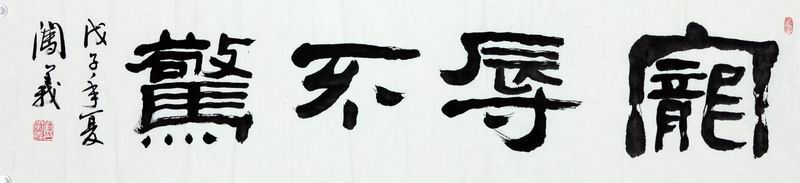 寵辱不驚
戊子年夏
閻義